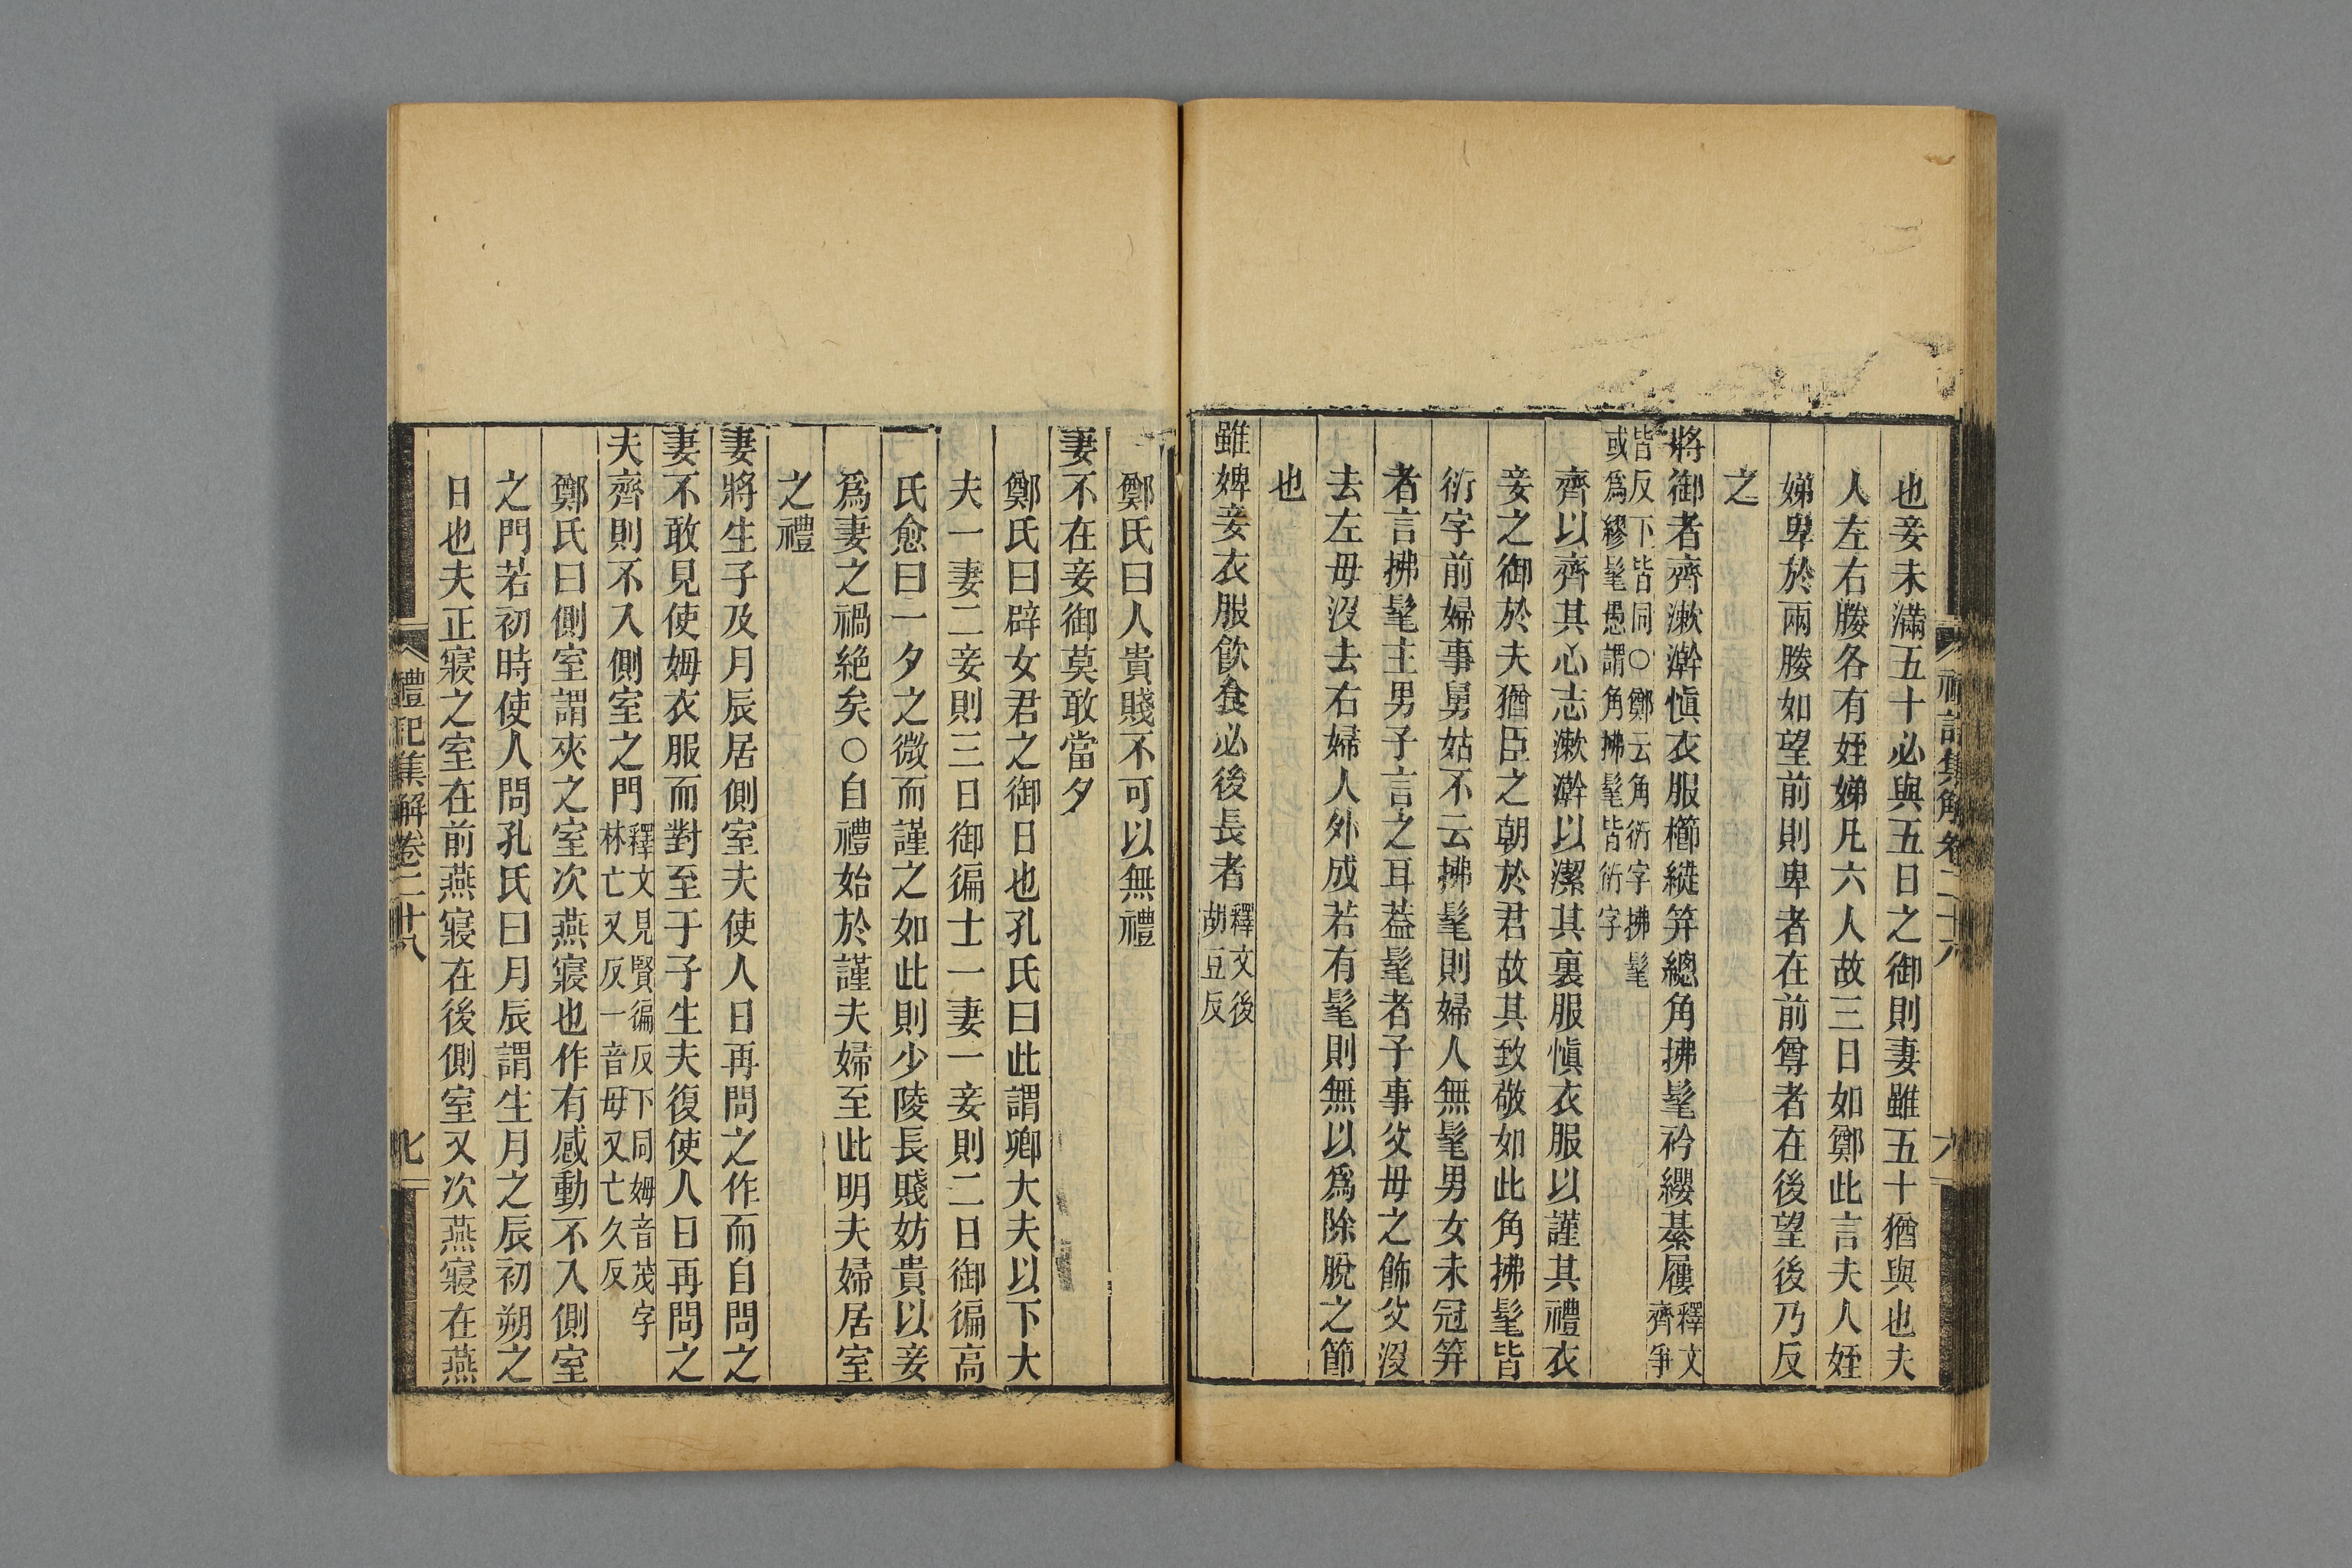 也妾未滿五十必與五日之御則妻雖五十猶與也夫
人左右媵各有姪娣凡六人故三日如鄭此言夫人姪
娣卑於兩媵如望前則卑者在前尊者在後望後乃反
之
將御者齊漱澣愼衣服櫛縰筓總角拂髦衿纓綦屨釋文齊爭
皆反下皆同○鄭云角衍字拂髦或爲繆髦愚謂角拂髦皆衍字
齊以齊其心志漱澣以潔其裏服愼衣服以謹其禮衣
妾之御於夫猶臣之朝於君故其致敬如此角拂髦皆
衍字前婦事舅姑不云拂髦則婦人無髦男女未冠筓
者言拂髦主男子言之耳葢髦者子事父母之飾父沒
去左母沒去右婦人外成若有髦則無以爲除脫之節
也
雖婢妾衣服飮食必後長者釋文後胡豆反
鄭氏曰人貴賤不可以無禮
妻不在妾御莫敢當夕
鄭氏曰辟女君之御日也孔氏曰此謂卿大夫以下大
夫一妻二妾則三日御徧士一妻一妾則二日御徧高
氏愈曰一夕之微而謹之如此則少陵長賤妨貴以妾
爲妻之禍絶矣○自禮始於謹夫婦至此明夫婦居室
之禮
妻將生子及月辰居側室夫使人日再問之作而自問之
妻不敢見使姆衣服而對至于子生夫復使人日再問之
夫齊則不入側室之門釋文見賢徧反下同姆音茂字林亡又反一音母又亡久反
鄭氏曰側室謂夾之室次燕寢也作有感動不入側室
之門若初時使人問孔氏曰月辰謂生月之辰初朔之
日也夫正寢之室在前燕寢在後側室又次燕寢在燕
禮記集解卷二十八